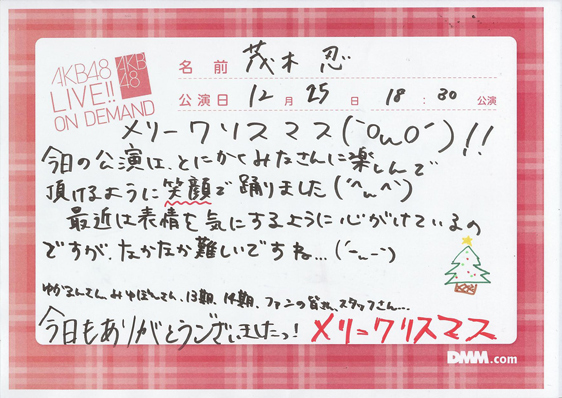 AKB48
LIVE!!
ON DEMAND
AKB
48
名前 茂木 忍
公演日 12月25日 18:30公演
メリークリスマス(`OωO´)!!
今日の公演は、とにかくみなさんに楽しんで
頂けるように笑顔で踊りました(´^ω^`)
最近は表情を気にするように心がけているの
ですが、なかなか難しいですね…(´-ω-`)
ゆかるんさん、みゆぽんさん、13期、14期、ファンの皆さま、スタッフさん…
今日もありがとうございましたっ! メリークリスマス
DMM.com